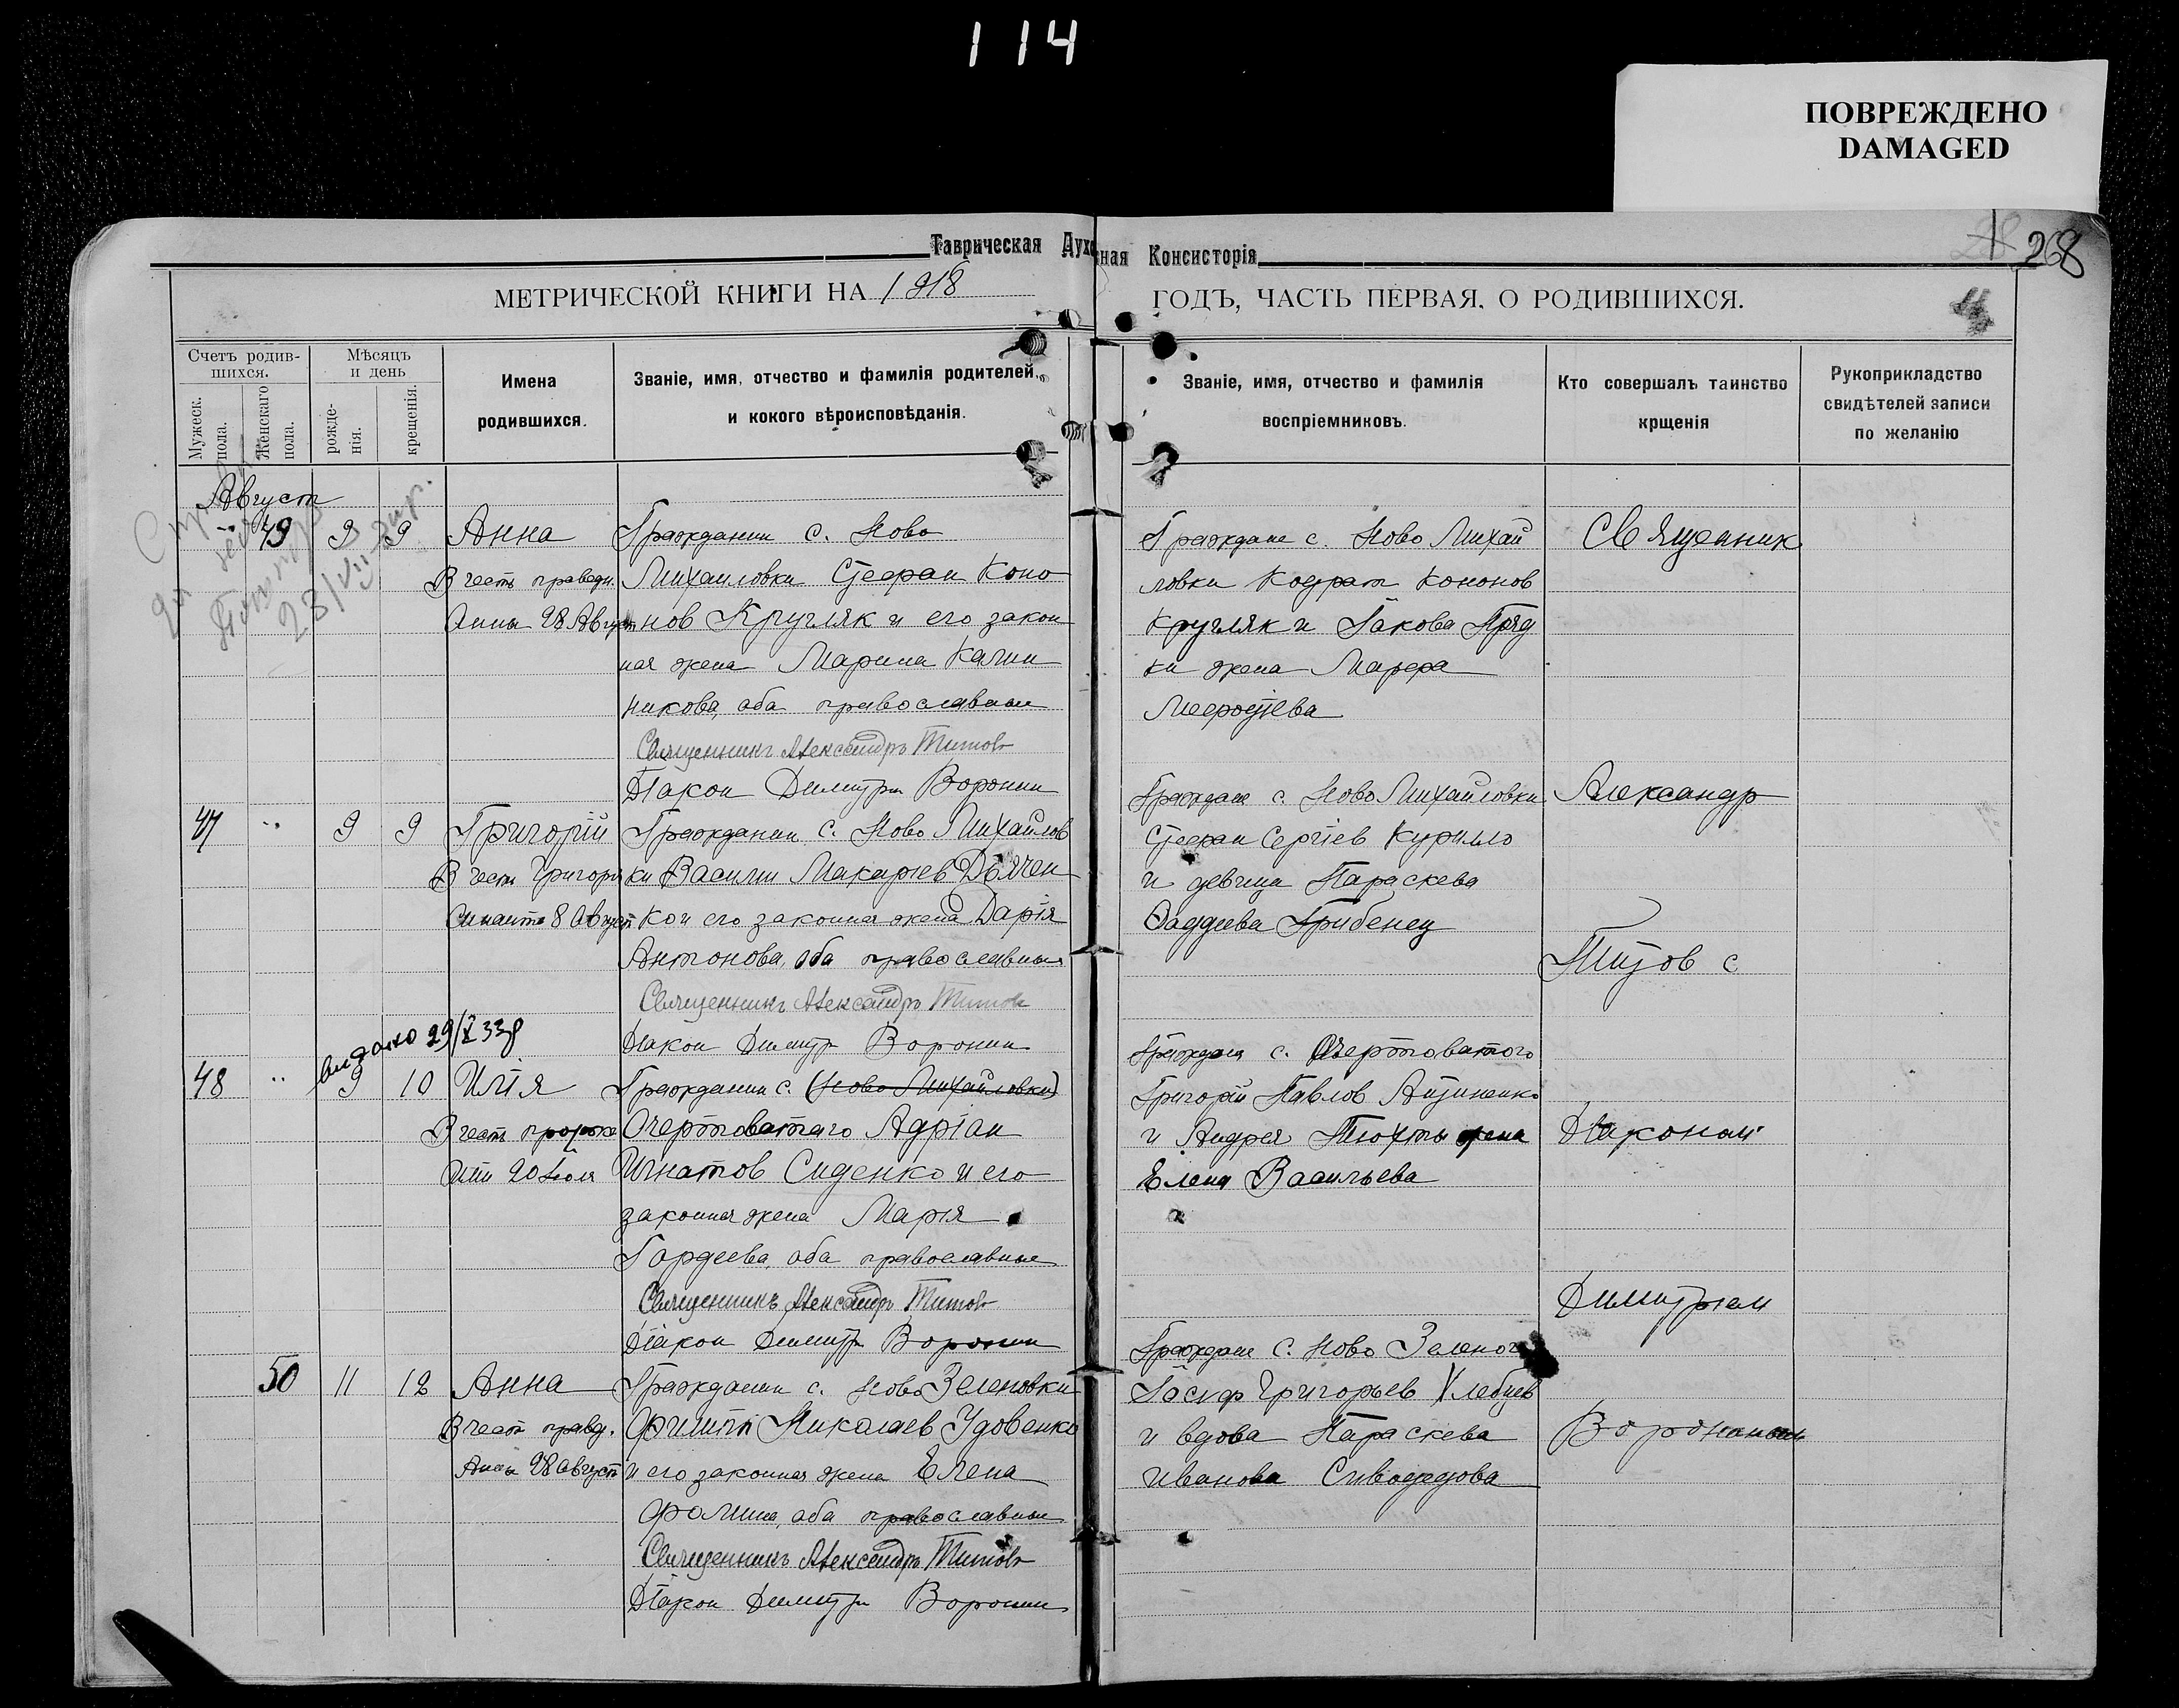 114
ПОВРЕЖДЕНО
DAMAGED
Таврическая Духовная Консисторія
268
МЕТРИЧЕСКОЙ КНИГИ НА 1918 ГОДЪ, ЧАСТЬ ПЕРВАЯ, О РОДИВШИХСЯ.
Счетъ родив-
шихся.
Мужеск. пола.
Женскаго пола.
Мѣсяцъ
и день
рожде-
нія.
крещенія.
Имена
родившихся.
Званіе, имя, отчество и фамилія родителей,
и кокого вѣроисповѣданія.
Званіе, имя, отчество и фамилія
воспріемниковъ.
Кто совершалъ таинство
крщенія
Рукоприкладство
свидѣтелей записи
по желанію
Август
49 9 9 Анна
В честь праведн.
Анны 28 Август
Гражданин с. Ново
Михаиловки Стефан Коно
нов Кругляк и его закон
ная жена Марина Калин
никова, оба православные
Священникъ Александръ Титовъ
Діакон Димитри Воронин
Граждане с. Ново Михай
ловки Кодрат Кононов
Кругляк и Іакова Пряд
ки жена Марфа
Мефодіева
Священник
47 9 9 Григорій
В честь Григорія
Синаита 8 Август
Гражданин с. Ново Михайлов
ки Василии Макариев Дьячен
ко и его законная жена Дарія
Антонова, оба православные
Священникъ Александръ Титовъ
Діакон Димитр Воронин
Граждане с. Ново Михайловки
Стефан Сергіев Курилло
и девица Параскева
Фаддеева Грибенец
Александр
Титов с
видано 29/X 33г
48 9 10 Илія
В честь пророка
Илии 20 Іюля
Гражданин с. (Ново Михайловки)
Очертоватаго Адріан
Игнатов Сиденко и его
законная жена Марія
Гордеева, оба православные
Священникъ Александръ Титовъ
Діакон Димитр Воронин
Граждане с. Очертоватого
Григорій Павлов
и Андрея Тюхты жена
Елена Васильева
Діаконом
Димитрием
50 11 12 Анна
В честь правед.
Анны 28 август
Гражданин с. Ново Зеленовки
Филипп Николаев Удовенко
и его законная жена Елена
Фомина, оба православные
Священникъ Александръ Титовъ
Діакон Димитри Воронин
Граждане с. Ново Зеленов
Іосиф Григорьев Хлебцев
и вдова Параскева
Иванова
Ворониным